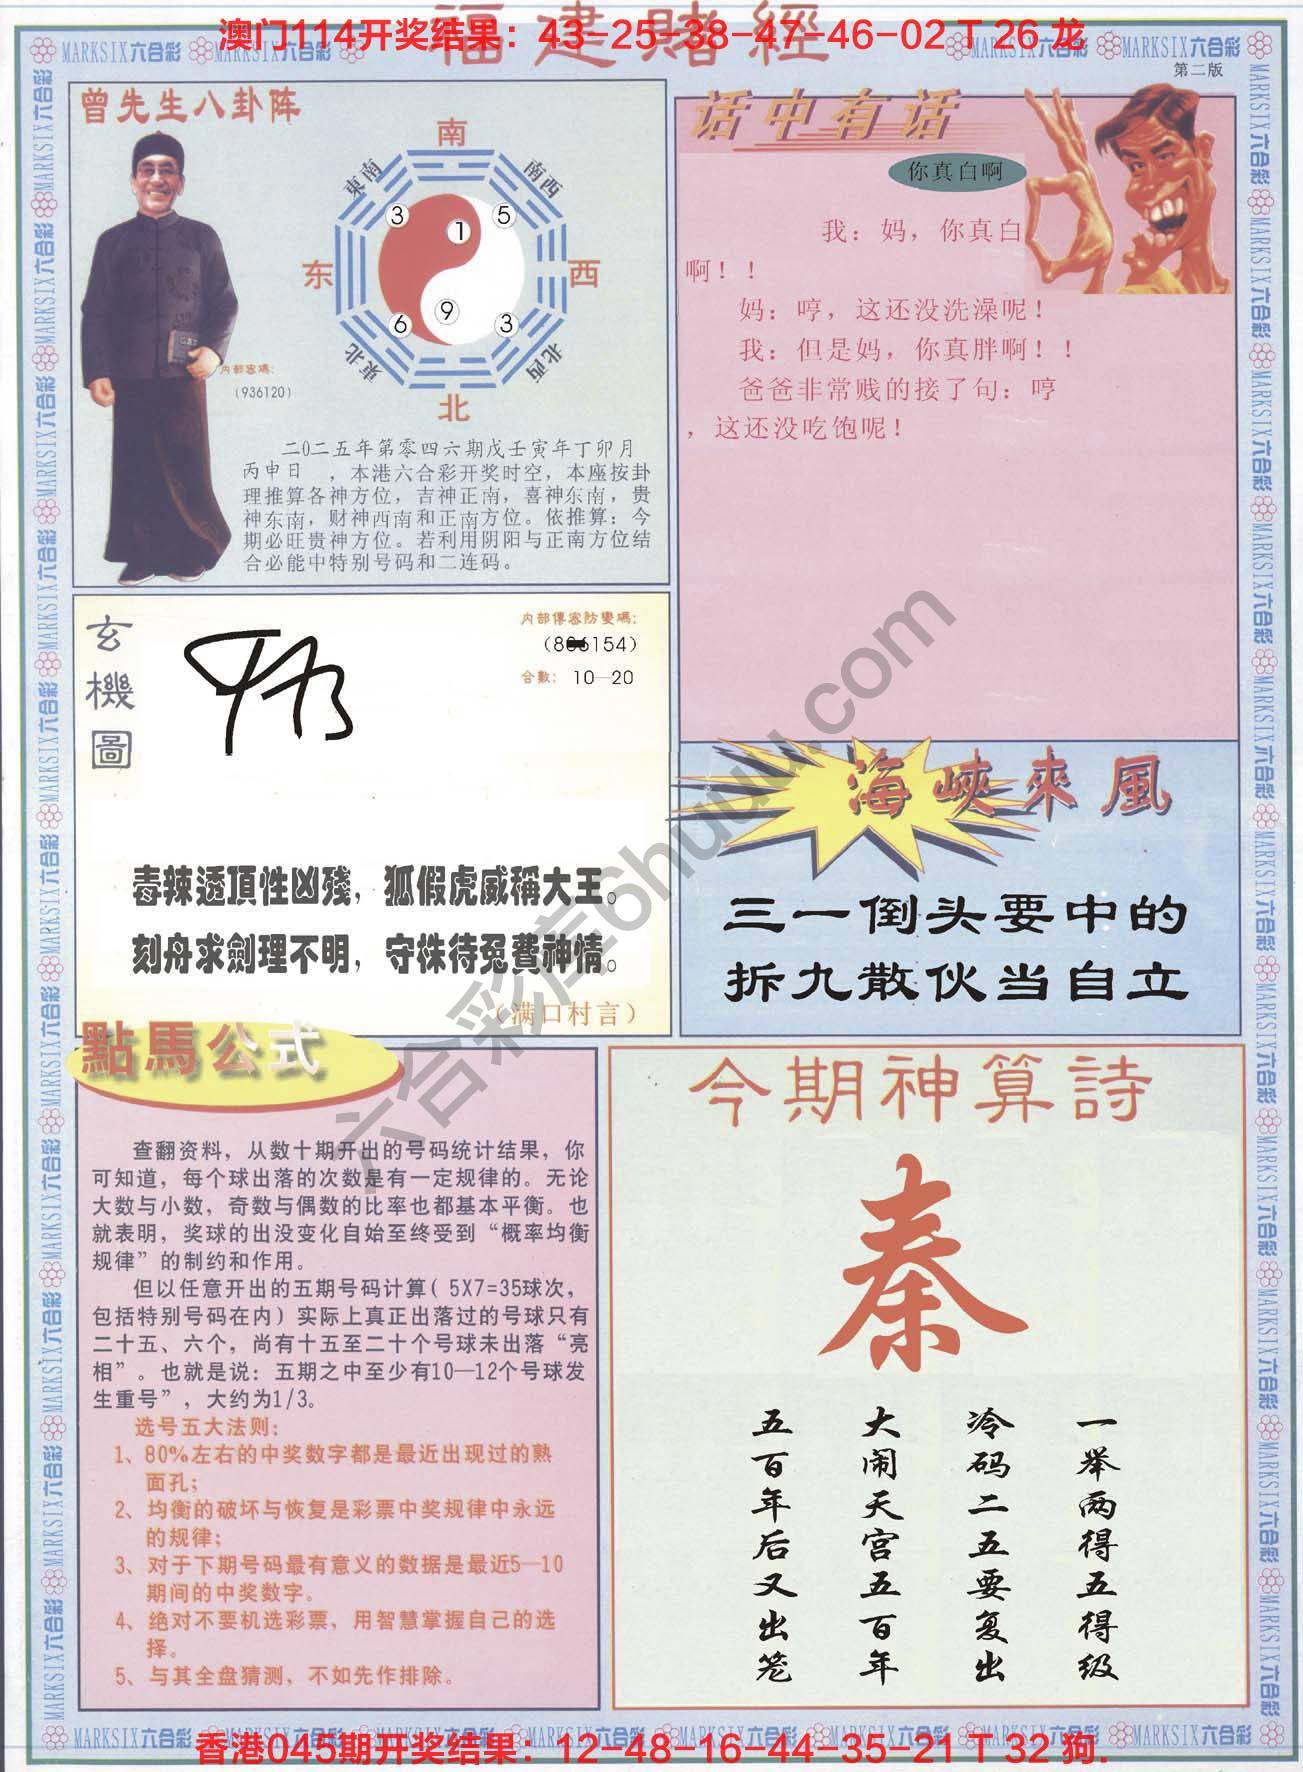 福建賭經
澳门114开奖结果：43-25-38-47-46-02 T 26 龙
MARKSIX六合彩
第二版
曾先生八卦阵
南
東南
南西
3
1
5
东
西
6
9
3
東北
北西
北
内部密碼：
(936120)
二0二五年第零四六期戊壬寅年丁卯月
丙申日 ，本港六合彩开奖时空，本座按卦
理推算各神方位，吉神正南，喜神东南，贵
神东南，财神西南和正南方位。依推算：今
期必旺贵神方位。若利用阴阳与正南方位结
合必能中特别号码和二连码。
话中有话
你真白啊
我：妈，你真白
啊！！
妈：哼，这还没洗澡呢！
我：但是妈，你真胖啊！！
爸爸非常贱的接了句：哼
，这还没吃饱呢！
玄機圖
内部傳密防變碼：
合數： 10—20
毒辣透頂性凶殘，狐假虎威稱大王。
刻舟求劍理不明，守株待兔費神情。
（满口村言）
海峽來風
三一倒头要中的
拆九散伙当自立
點馬公式
查翻资料，从数十期开出的号码统计结果，你
可知道，每个球出落的次数是有一定规律的。无论
大数与小数，奇数与偶数的比率也都基本平衡。也
就表明，奖球的出没变化自始至终受到“概率均衡
规律”的制约和作用。
但以任意开出的五期号码计算( 5X7=35球次，
包括特别号码在内) 实际上真正出落过的号球只有
二十五、六个，尚有十五至二十个号球未出落“亮
相”。也就是说：五期之中至少有10—12个号球发
生重号”，大约为1/3。
选号五大法则：
1、80%左右的中奖数字都是最近出现过的熟
面孔；
2、均衡的破坏与恢复是彩票中奖规律中永远
的规律；
3、对于下期号码最有意义的数据是最近5—10
期间的中奖数字。
4、绝对不要机选彩票，用智慧掌握自己的选
择。
5、与其全盘猜测，不如先作排除。
今期神算詩
秦
一举两得五得级
冷码二五要复出
大闹天宫五百年
五百年后又出笼
六合彩库6huuu.com
香港045期开奖结果：12-48-16-44-35-21 T 32 狗.